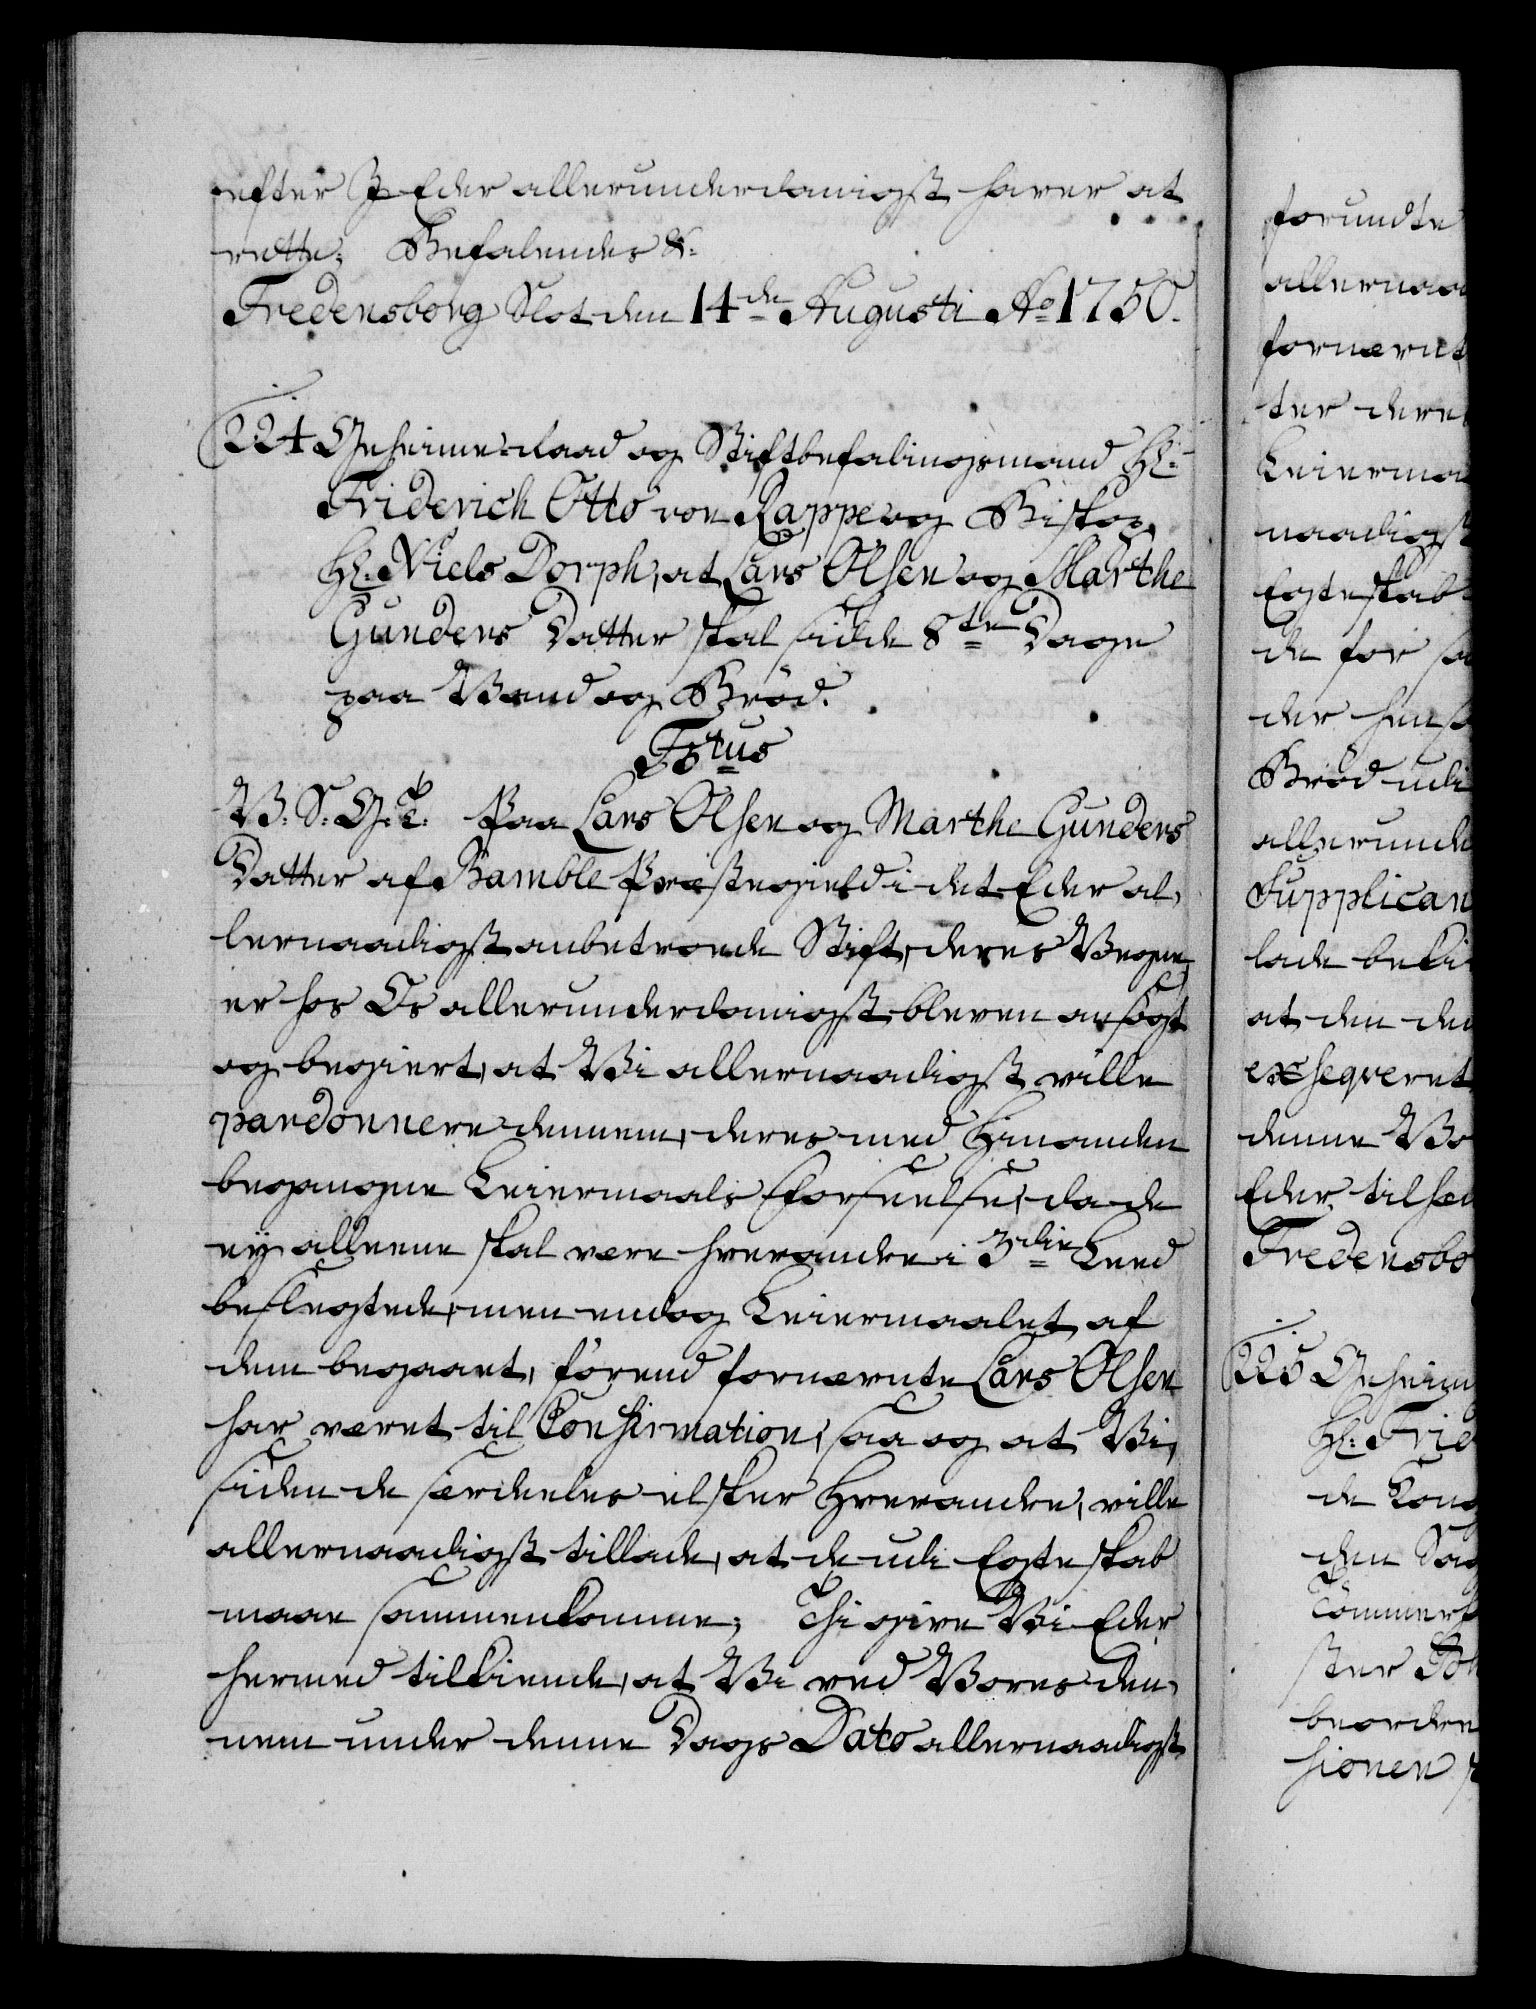 efter I Eder allerunderdanigst haver at
rette. Befalendes &.
Fredensborg Slot den 14de Augusti Ao 1750.
224 Geheimeraad og Stiftbefalingsmand Hr.
Friderich Otto von Rappe og Biskop
Hr. Niels Dorph, at Lars Olsen og Marthe
Gunders Datter skal sidde 8te Dage
paa Vand og Brød.
Fstus
V. S. G. T. Paa Lars Olsen og Marthe Gunders
Datter af Bamble Præstegield i det Eder al-
lernaadigst anbetroede Stift, deres Vegne
er hos Os allerunderdanigst bleven ansøgt
og begiert, at Vi allernaadigst ville
pardonnere dennem, deres med hinanden
begangne Leiermaals Forseelse, da de
ey alleene skal være hverandre i 3die Leed
beslegtede, men endog Leiermaalet af
dem begaaet, førend fornævnte Lars Olsen
har været til Confirmation, saa og at Vi,
siden de særdeles elsker hverandre, ville
allernaadigst tillade, at de udi Egteskab
maae sammenkomme; Thi give Vi Eder
hermed tilkiende, at Vi ved Vores den-
nem under denne Dags Dato allernaadigst
forundte
allernaa
fornævnt
ter dere
Leierma
naadigst
Egteskab
de for sa
der hens
Brød udi
allerunde
Supplican
lade beki
at den de
exseqveret
denne Vo
Eder tilsen
Fredensbo
225 Geheim
Hr. Frie
de Kong
den Sag
Tømmer
ster
beordre
sionen